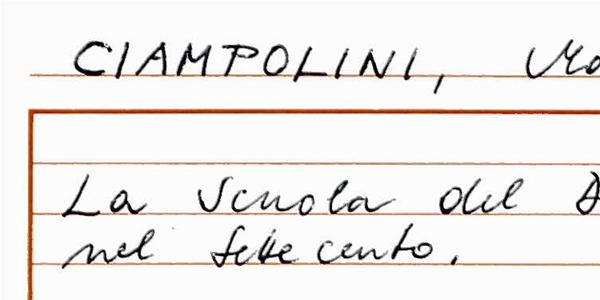 CIAMPOLINI,
La Scuola del
nel settecento.